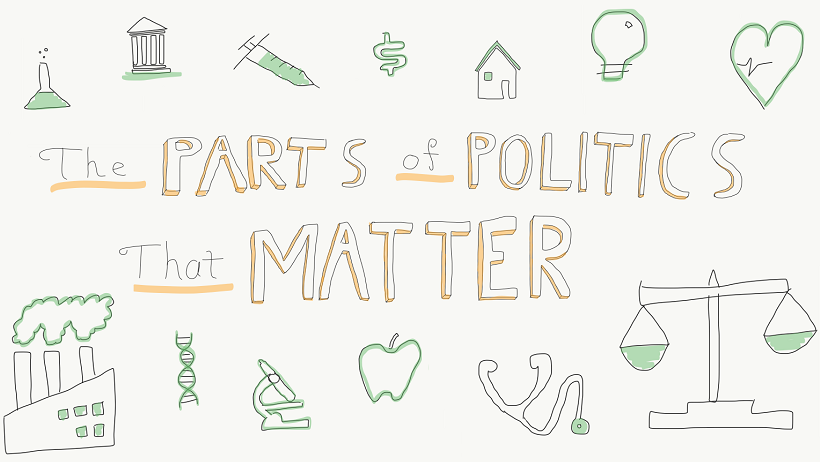 The PARTS of POLITICS
That MATTER